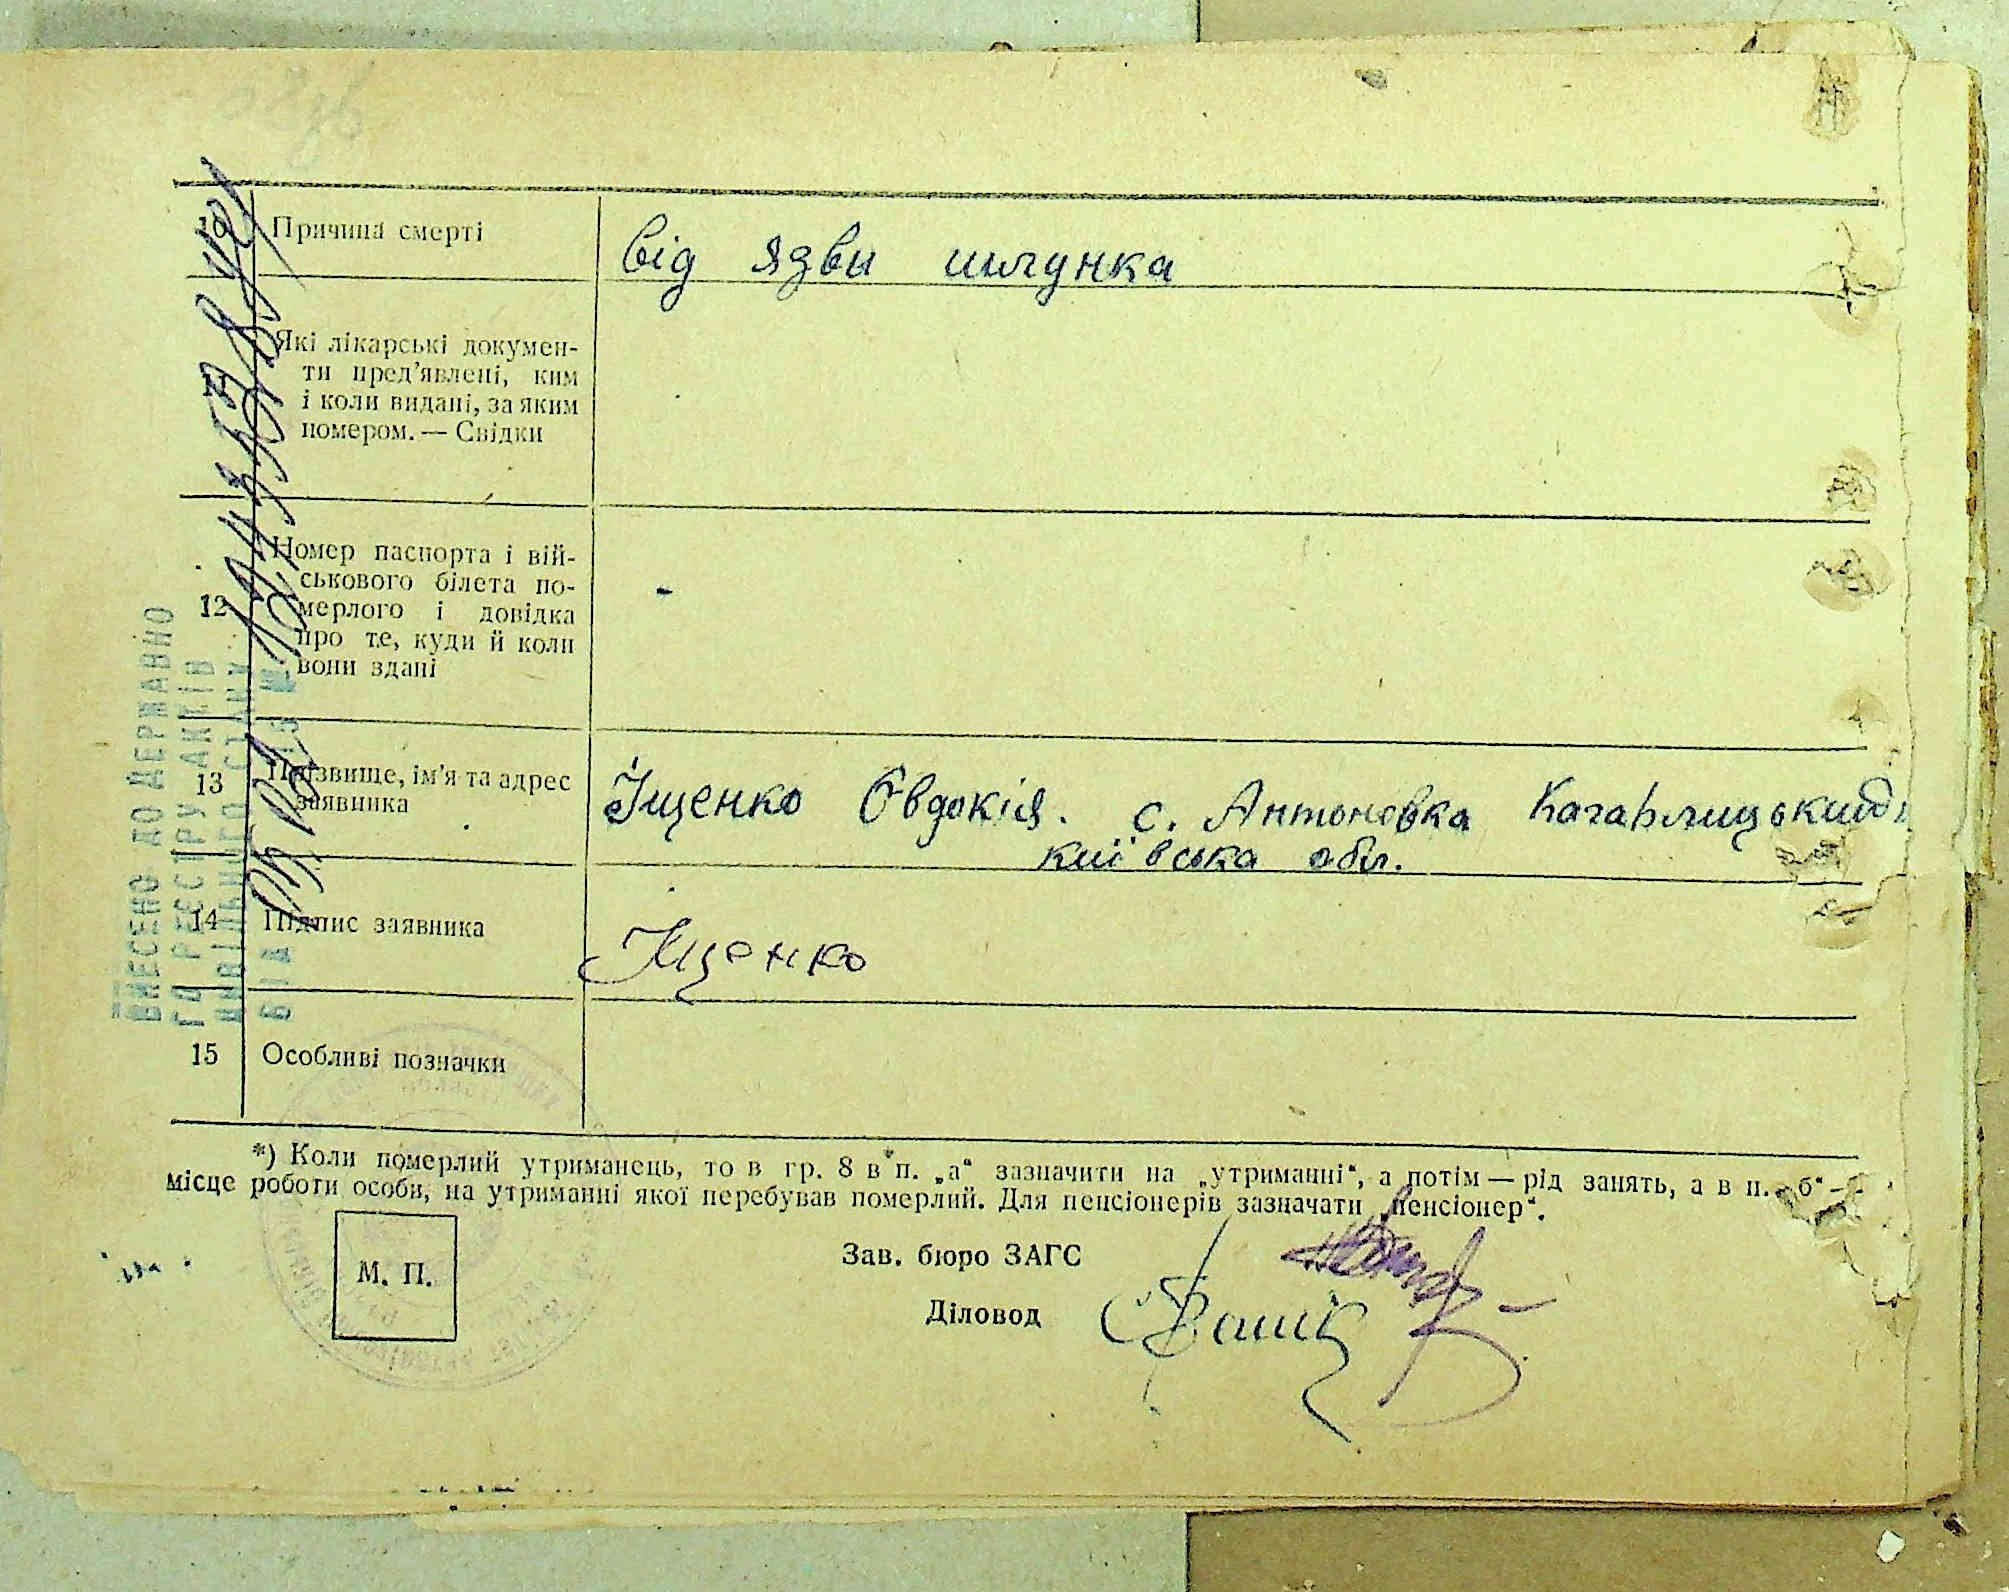 10 Причина смерті
від язви шлунка
11 Які лікарські докумен-
ти пред'явлені, ким
і коли видані, за яким
номером. — Свідки
12 Номер паспорта і вій-
ськового білета по-
мерлого і довідка
про те, куди й коли
вони здані
-
13 Прізвище, ім'я та адрес
заявника
Іщенко Євдокія. с. Антоновка Кагарлицький
київська обл.
14 Підпис заявника
Іщенко
15 Особливі позначки
ВНЕСЕНО ДО ДЕРЖАВНО
ГО РЕЄСТРУ АКТІВ
ЦИВІЛЬНОГО СТАНУ
ВІД ЗА №
*) Коли померлий утриманець, то в гр. 8 в п. „а“ зазначити на „утриманні“, а потім — рід занять, а в п. „б“ —
місце роботи особи, на утриманні якої перебував померлий. Для пенсіонерів зазначати „пенсіонер“.
М. П.
Зав. бюро ЗАГС
Діловод